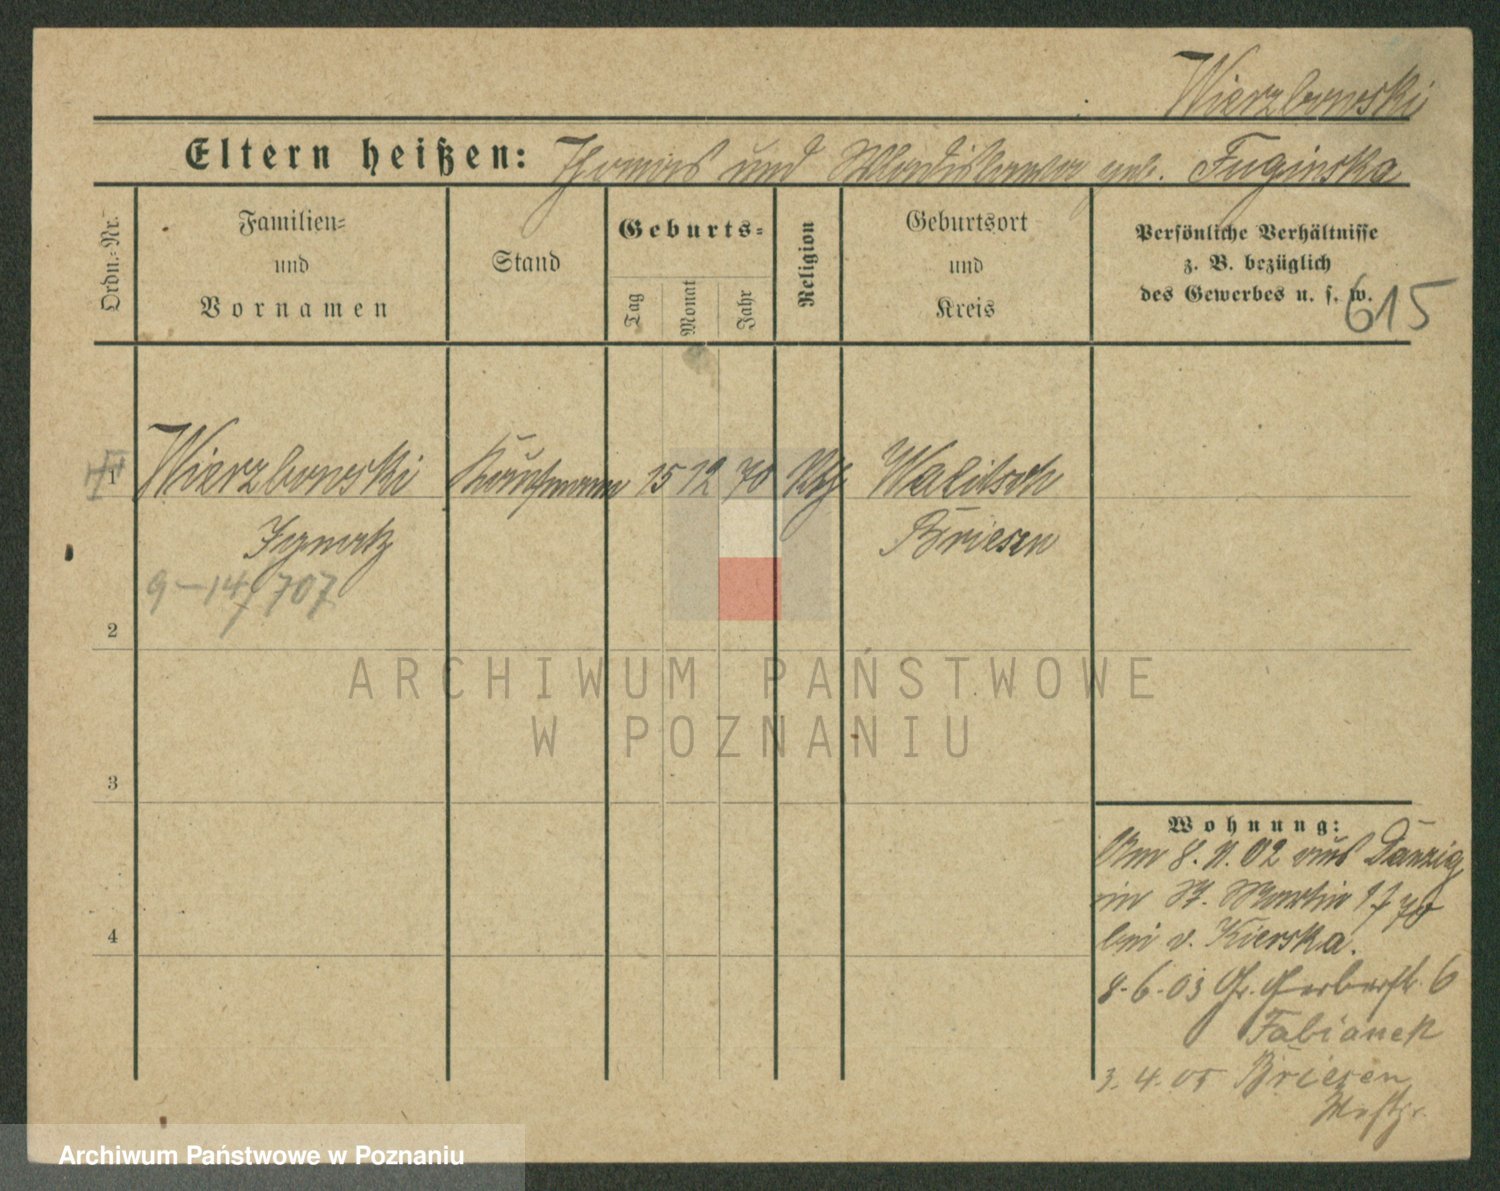 Wierzbowski
Eltern heißen: Thomas und Wladislawa geb. Fuginska
Ordn.-Nr.
Familien-
und
Vornamen
Stand
Geburts-
Tag
Monat
Jahr
Religion
Geburtsort
und
Kreis
Persönliche Verhältnisse
z. B. bezüglich
des Gewerbes u. s. w.
615
1 Wierzbowski Kaufmann 15 12 70 Kth Walitsch
Ignatz Briesen
9-14/707
2
3
4
Wohnung:
Am 8. 11. 02 aus Danzig
in St. Martin
bei v. Kierska.
8-6-03 Gr. Gerberstr. 6
Fabianek
3. 4. 05 Briesen
Westpr.
ARCHIWUM PAŃSTWOWE
W POZNANIU
Archiwum Państwowe w Poznaniu